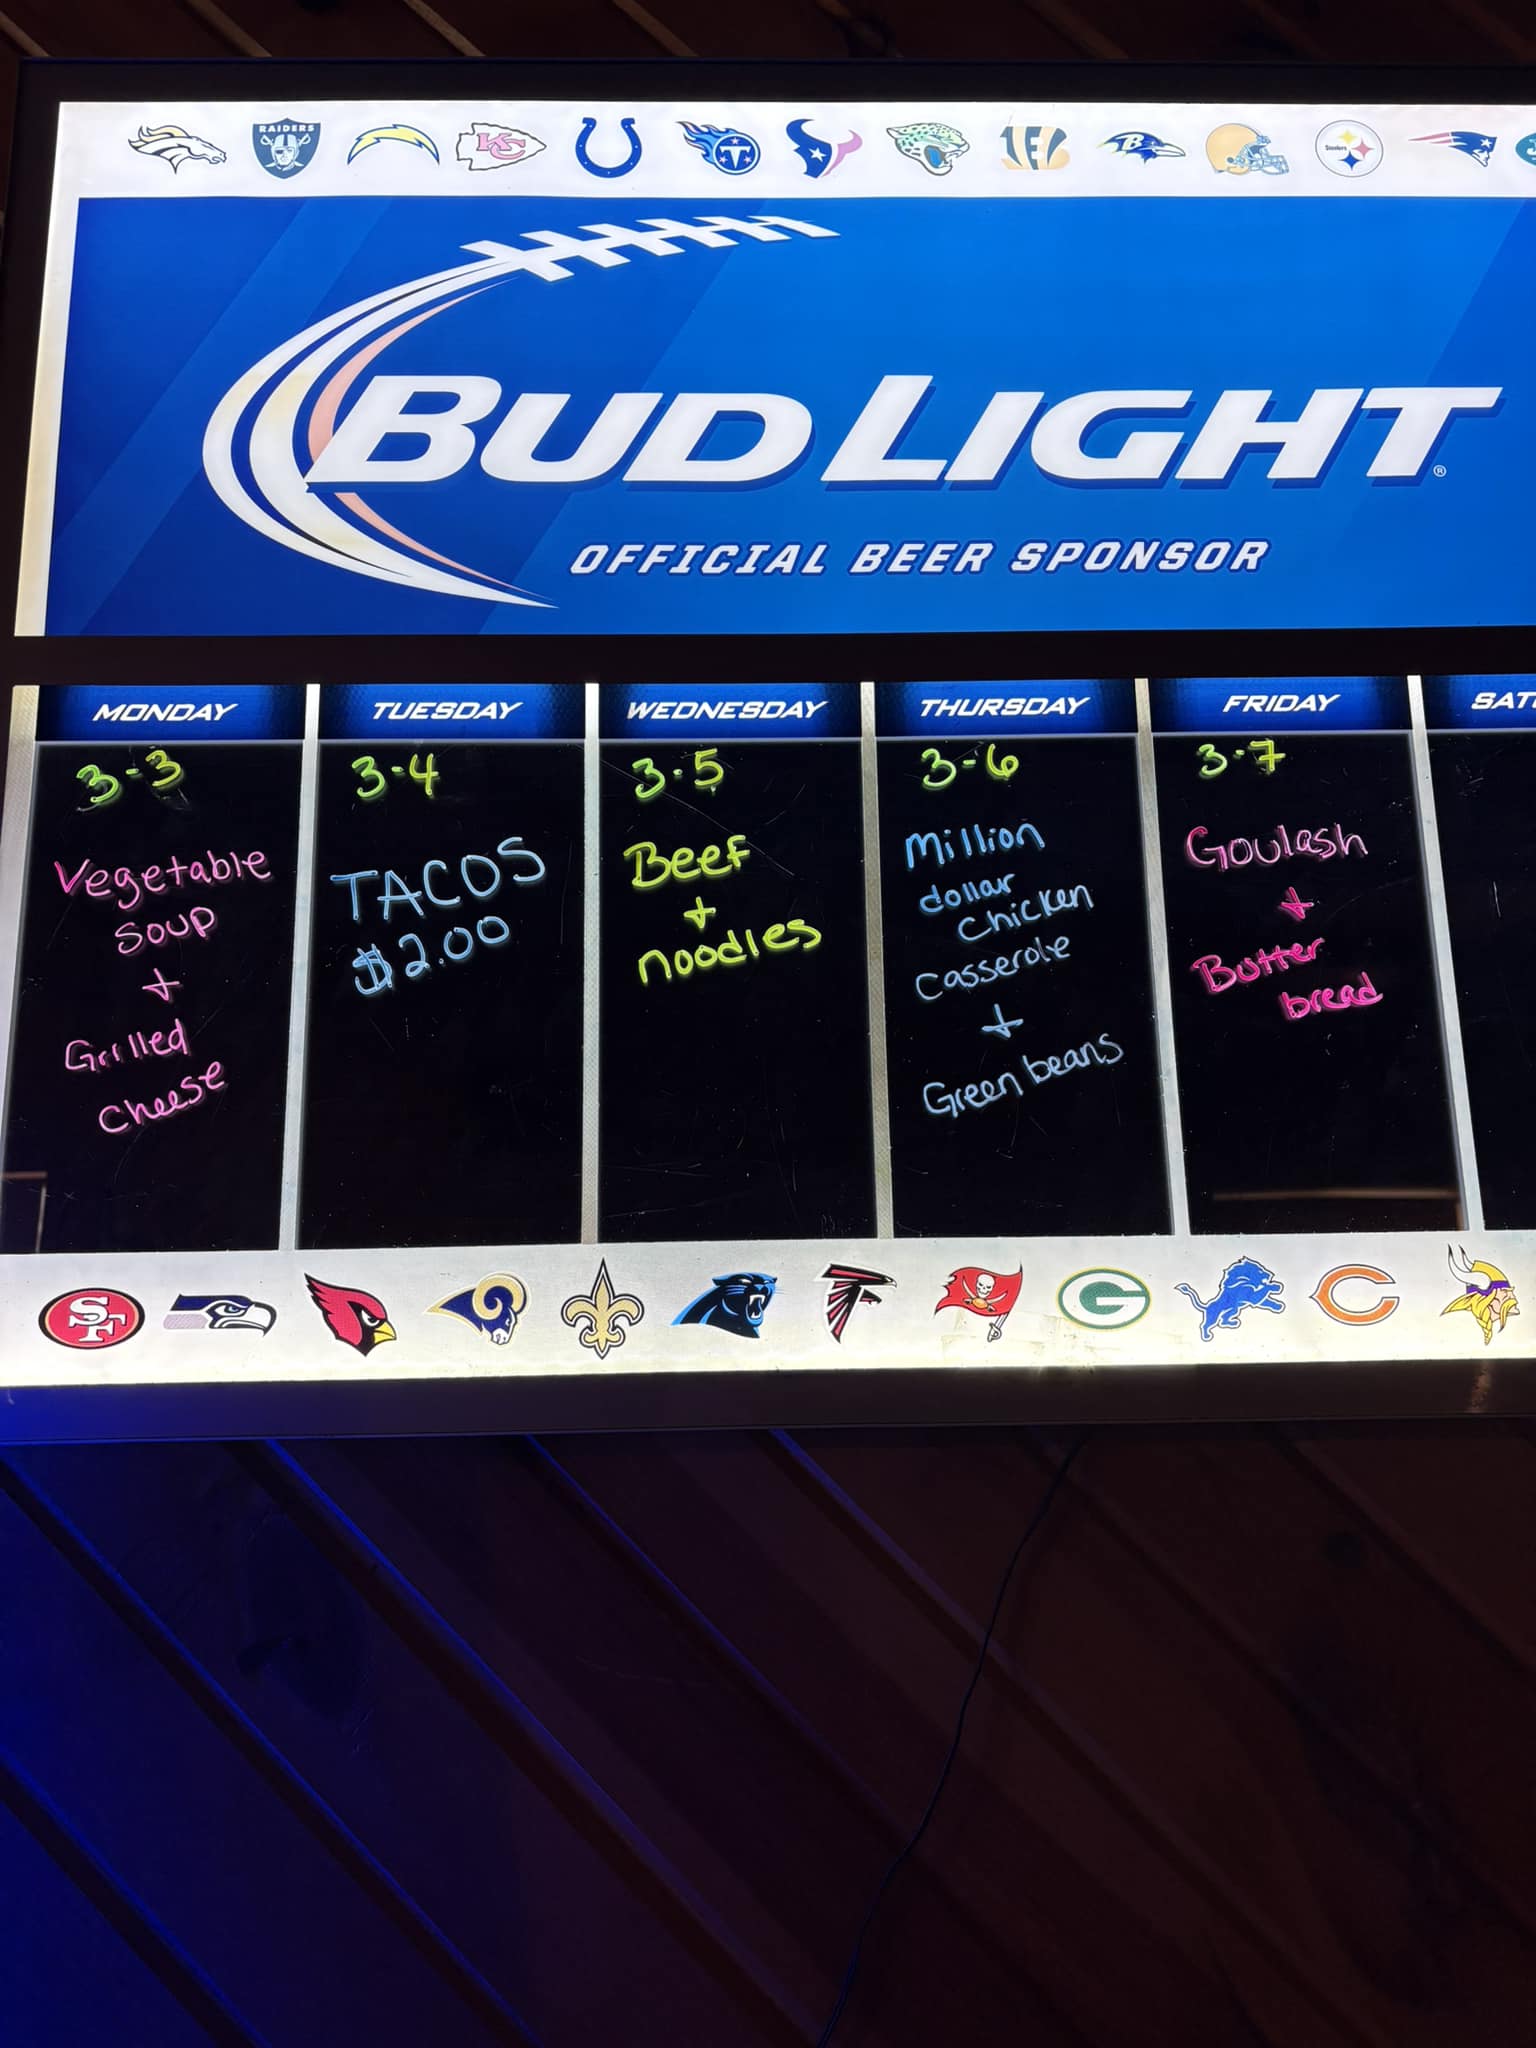 RAIDERS
KC
B
Steelers
BUD LIGHT®
OFFICIAL BEER SPONSOR
MONDAY
3-3
Vegetable
Soup
+
Grilled
cheese
TUESDAY
3-4
TACOS
$2.00
WEDNESDAY
3-5
Beef
+
noodles
THURSDAY
3-6
Million
dollar
Chicken
Casserole
+
Green beans
FRIDAY
3-7
Goulash
+
Butter
bread
SAT
SF
G
C